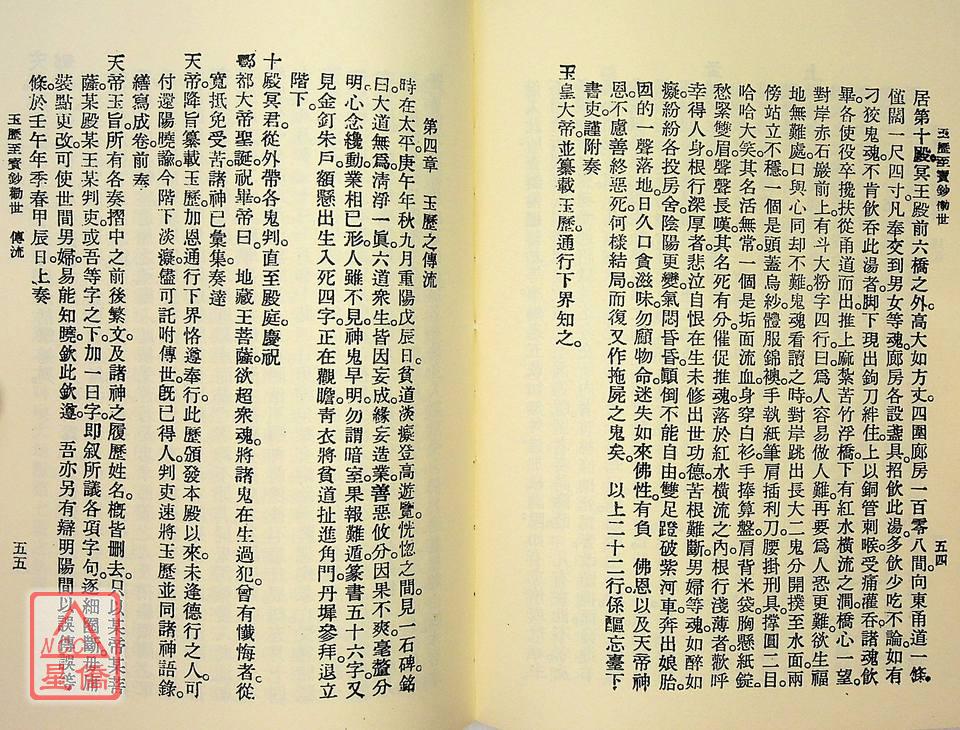 玉歷至寶鈔勸世
五四
居第十殿冥王殿前六橋之外。高大如方丈。四圍廊房一百零八間。向東甬道一條。
僅闊一尺四寸。凡奉交到男女等魂。廊房各設盞具。招飲此湯。多飲少吃不論。如有
刁狡鬼魂。不肯飲吞此湯者。脚下現出鉤刀絆住。上以銅管刺喉。受痛灌吞。諸魂飲
畢。各使役卒攙扶從甬道而出。推上麻紮苦竹浮橋。下有紅水橫流之澗。橋心一望。
對岸赤石巖前上有斗大粉字四行。曰爲人容易做人難。再要爲人恐更難。欲生福
地無難處。口與心同却不難。鬼魂看讀之時。對岸跳出長大二鬼。分開撲至水面。兩
傍站立不穩。一個是頭蓋烏紗。體服錦襖。手執紙筆。肩插利刀。腰掛刑具。撑圓二目。
哈哈大笑。其名活無常。一個是垢面流血。身穿白衫。手捧算盤。肩背米袋。胸懸紙錠。
愁緊雙眉。聲聲長嘆。其名死有分。催促推魂。落於紅水橫流之內。根行淺薄者。歡呼
幸得人身。根行深厚者。悲泣自恨在生未修出世功德。苦根難斷。男婦等魂。如醉如
癡。紛紛各投房舍。陰陽更變。氣悶昏昏。顚倒不能自由。雙足蹬破紫河車。奔出娘胎。
囙的一聲落地。日久口貪滋味。勿顧物命。迷失如來佛性。有負 佛恩以及天帝神
恩。不慮善終惡死。何樣結局。而復又作拖屍之鬼矣。 以上二十二行。係醧忘臺下
書吏。謹附奏
玉皇大帝。並纂載玉歷。通行下界知之。
第四章 玉歷之傳流
時在太平。庚午年秋九月重陽戊辰日。貧道淡癡登高遊覽。恍惚之間。見一石碑。銘
曰大道無爲清淨一眞。六道衆生皆因妄成緣。妄造業善惡攸分。因果不爽毫釐。分
明心念纔動。業相已形。人雖不見。神鬼早明。勿謂暗室。果報難遁。篆書五十六字。又
見金釘朱戶。額懸出生入死四字。正在觀瞻。靑衣將貧道扯進角門。丹墀參拜。退立
階下。
十殿冥君。從外帶各鬼判。直至殿庭慶祝
酆都大帝聖誕。祝畢。帝曰。 地藏王菩薩。欲超衆魂。將諸鬼在生過犯。曾有懺悔者。從
寬抵免受苦。諸神已彙集奏達
天帝。降旨纂載玉歷。加恩通行下界。恪遵奉行。此歷頒發本殿以來。未逢德行之人。可
付還陽曉諭。今階下淡癡。儘可託咐傳世。旣已得人。判吏速將玉歷。並同諸神語錄。
繕寫成卷。前奏
天帝玉旨。所有各奏摺中之前後繁文。及諸神之履歷姓名。槪皆刪去。只以某帝某菩
薩某殿某王某判吏。或吾等字之下。加一曰字。卽叙所議各項字句。逐細圈斷。毋庸
裝點更改。可使世間男婦易能知曉。欽此欽遵。 吾亦另有辯明陽間以誤傳誤等
條。於壬午年季春甲辰日上奏。
玉歷至寶鈔勸世 傳流
五五
NCC
星僑